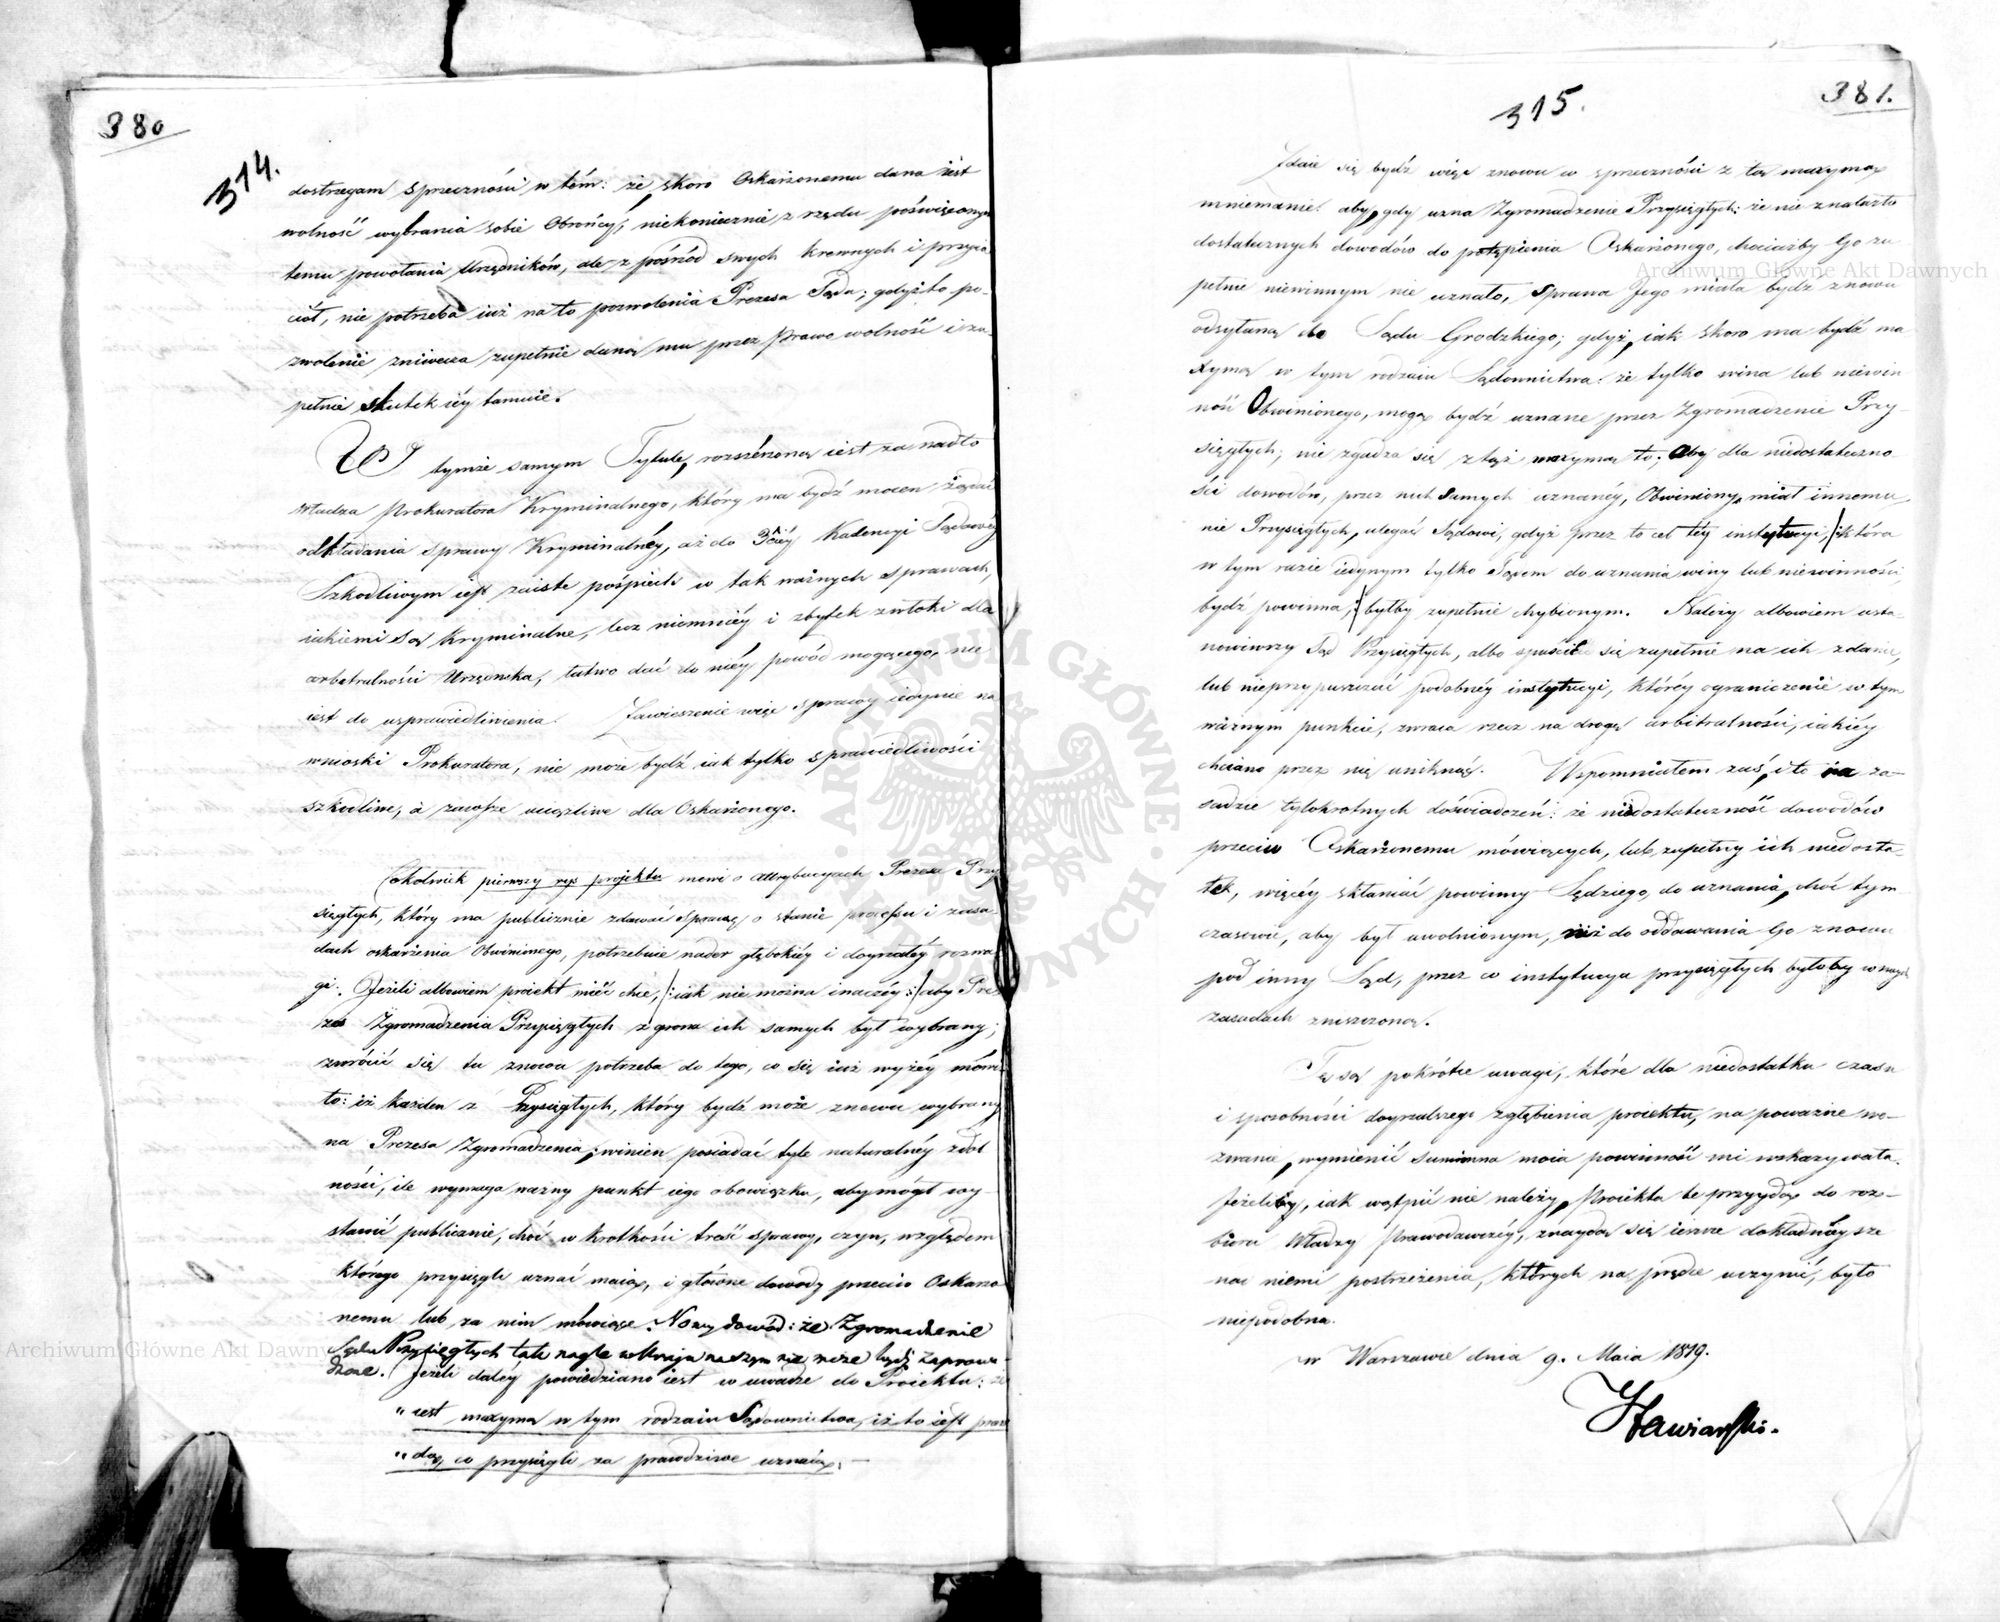 380
314.
dostrzegam sprzeczności w tém: że, skoro Oskarżonemu dana iest
wolność wybrania sobie Obrońcy, niekoniecznie z rzędu poświęconych
temu powołania Urzędników, ale z pośród swych krewnych i przyia-
ciół, nie potrzeba iuż na to pozwolenia Prezesa Sądu; gdyż to po-
zwolenie zniwecza zupełnie daną mu przez Prawo wolność i zu-
pełnie skutek iéy tamuie.
W tymże samym Tytule, rozszérzoną iest za nadto
władza Prokuratora Kryminalnego, który ma bydź mocen żądać
odkładania sprawy Kryminalnéy, aż do 3ciéy Kadencyi Sądowéy
Szkodliwym iest zaiste pośpiech w tak ważnych sprawach,
iakiemi są Kryminalne, lecz niemniéy i zbytek zwłoki dla
arbitralności Urzędnika, łatwo dać do niéy powód mogącego, nie
iest do usprawiedliwienia. Zawieszenie więc sprawy iedynie na
wnioski Prokuratora, nie może bydź iak tylko sprawiedliwości
szkodliwe, a zawsze uciążliwe dla Oskarżonego.
Cokolwiek pierwszy rys projektu mówi o attrybucyach Prezesa Przy
sięgłych, który ma publicznie zdawać sprawę o stanie processu i zasa-
dach oskarżenia Obwinionego, potrzebuie nader głębokiéy i doyrzałéy rozwa-
gi. Jeżeli albowiem proiekt mieć chce, /: iak nie można inaczéy :/ aby Pre-
zes Zgromadzenia Przysięgłych z grona ich samych był wybrany;
zwrócić się tu znowu potrzeba do tego, co się iuż wyżéy mówi-
ło: iż każden z Przysięgłych, który bydź może znowu wybrany
na Prezesa Zgromadzenia, winien posiadać tyle naturalnéy zdol
ności, ile wymaga ważny punkt iego obowiązku, aby mógł wy-
stawić publicznie, choć w krótkości treść sprawy, czyn, względem
którego przysięgli uznać maią, i główne dowody przeciw Oskarżo
nemu lub za nim mówiące. Nowy dowód: że Zgromadzenie
Sądu Przysięgłych tak nagle w Kraju naszym nie może bydź zaprowa-
dzone. Jeżeli daléy powiedziano iest w uwadze do Proiektu: że
" iest maxymą w tym rodzaiu Sądownictwa, iż to iest praw
" dą, co przysięgli za prawdziwe uznaią. —
381.
315.
Zdaie się bydź więc znowu w sprzeczności z tą maxymą
mniemanie: aby, gdy uzna Zgromadzenie Przysięgłych: że nie znalazło
dostatecznych dowodów do potępienia Oskarżonego, chociażby Go zu
pełnie niewinnym nie uznało, sprawa Jego miała bydź znowu
odsyłaną do Sądu Grodzkiego; gdyż, iak skoro ma bydź ma
xymą w tym rodzaiu Sądownictwa: że tylko wina lub niewin
ność Obwinionego, mogą bydź uznane przez Zgromadzenie Przy-
sięgłych; nie zgadza się z tąż maxymą to: aby dla niedostateczno-
ści dowodów, przez nich samych uznanéy, Obwiniony, miał innemu,
nie Przysięgłych, ulegać Sądowi, gdyż przez to cel téy instytucyi, /: która
w tym razie iedynym tylko Sądem do uznania winy lub niewinności
bydź powinna, :/ byłby zupełnie chybionym. Należy albowiem usta-
nowiwszy Sąd Przysięgłych, albo spuścić się zupełnie na ich zdanie,
lub nieprzypuszczać podobnéy instytucyi, któréy ograniczenie w tym
ważnym punkcie, zwraca rzecz na drogę arbitralności, iakiéy
chciano przez nią uniknąć. Wspomniałem zaś, i to na za-
sadzie tylokrotnych doświadczeń: że niedostateczność dowodów
przeciw Oskarżonemu mówiących, lub zupełny ich niedosta-
tek, więcéy skłaniać powinny Sędziego, do uznania, choć tym
czasowie, aby był uwolnionym, niż do oddawania Go znowu
pod inny Sąd, przez co instytucya przysięgłych byłoby w swych
zasadach zniszczoną.
Te są pokrótce uwagi, które dla niedostatku czasu
i sposobności doyrzalszego zgłębienia proiektu, na poważne we-
zwanie, wymienić sumienna moia powinność mi wskazywała.
Jeżeliby, iak wątpić nie należy, Proiekta te przyydą do roz-
bioru Władzy Prawodawczéy, znaydą się ieszcze dokładnieysze
nad niemi postrzeżenia, których na prędce uczynić, było
niepodobna.
w Warszawie dnia 9. Maia 1819.